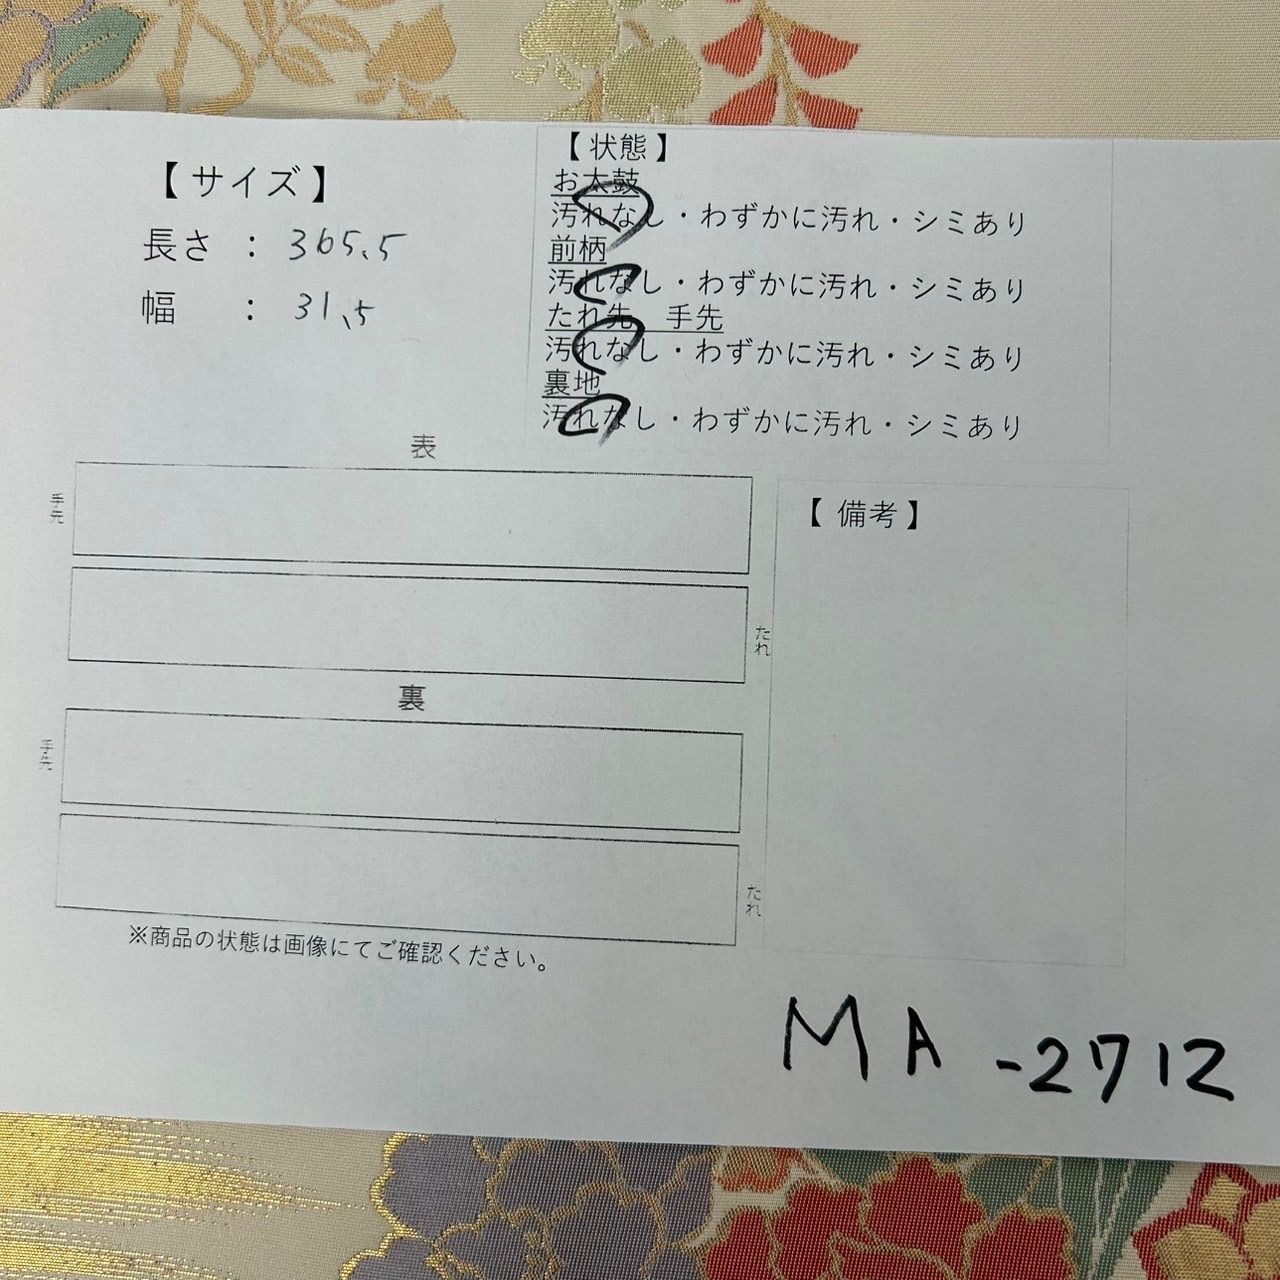 【サイズ】
長さ : 365.5
幅 : 31.5
【状態】
お太鼓
汚れなし・わずかに汚れ・シミあり
前柄
汚れなし・わずかに汚れ・シミあり
たれ先 手先
汚れなし・わずかに汚れ・シミあり
裏地
汚れなし・わずかに汚れ・シミあり
表
手先
たれ
裏
手先
たれ
※商品の状態は画像にてご確認ください。
【備考】
MA-2712